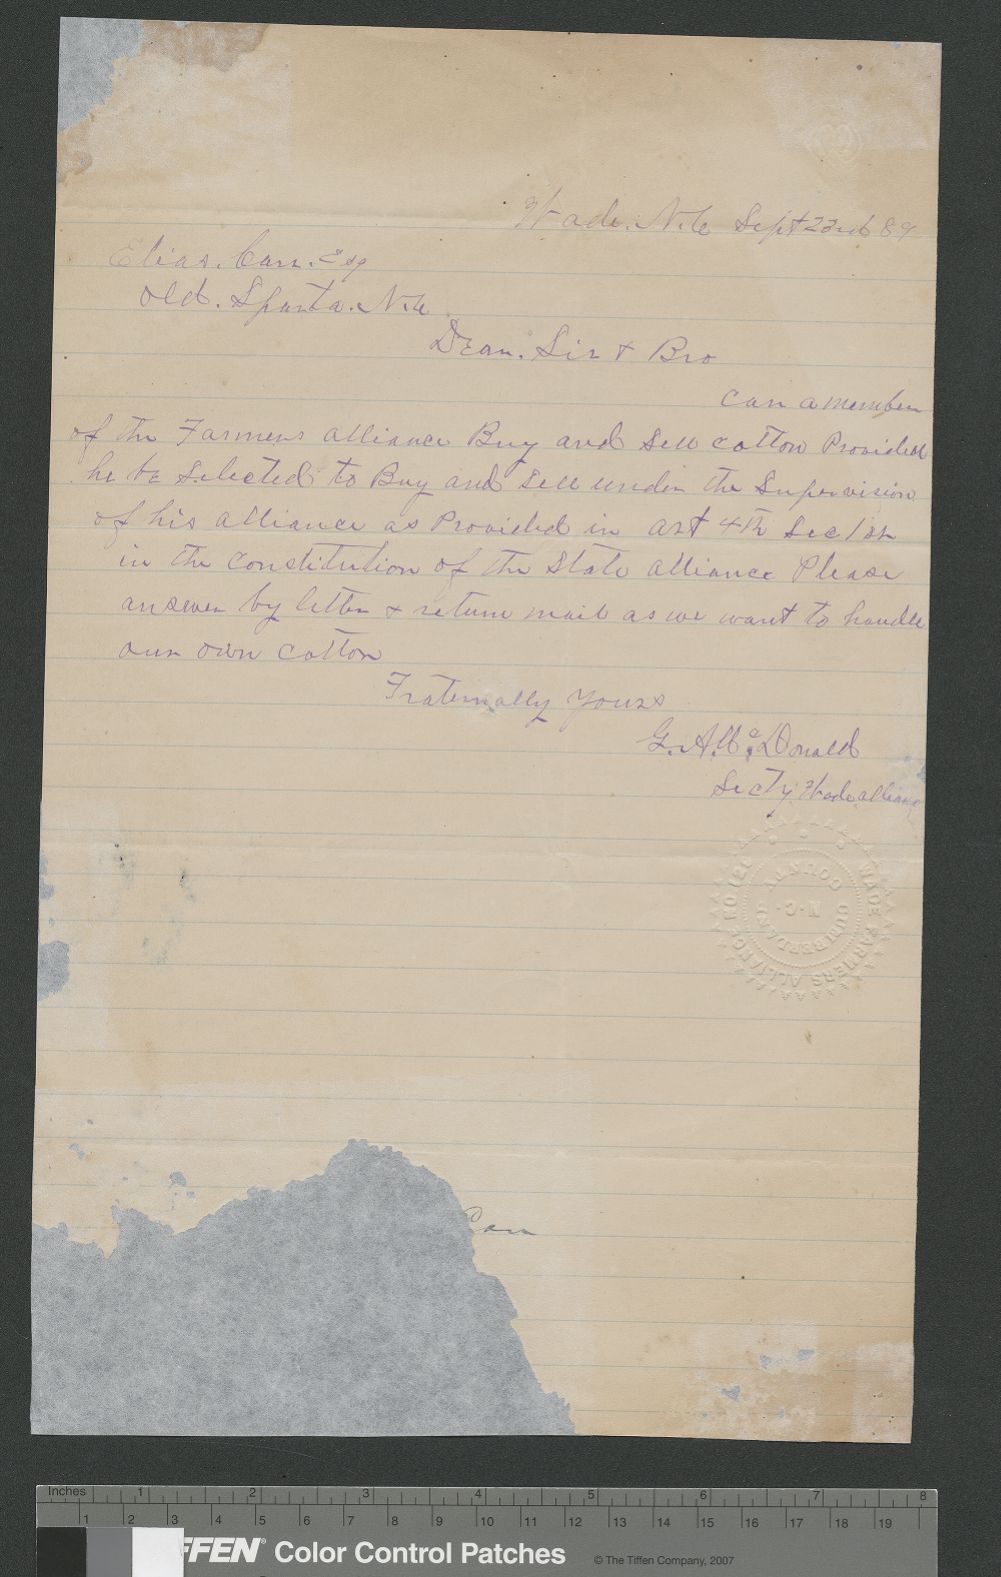 Wade. N.C Sept 22nd 89
Elias. Carr. Esq
Old. Sparta. N.C
Dear. Sir & Bro
Can a member
of the Farmers alliance Buy and Sell cotton Provided
he be Selected to Buy and Sell under the Supervision
of his alliance as Provided in art 4th Sec 1st
in the Constitution of the State alliance Please
answer by letter & return mail as we want to handle
our own cotton
Fraternally Yours
G. A. Mc Donald
Secty Wade alliance
WADE FARMERS ALLIANCE NO 1121
CUMBERLAND COUNTY
N.C.
Carr
Inches 1 2 3 4 5 6 7 8
1 2 3 4 5 6 7 8 9 10 11 12 13 14 15 16 17 18 19
FFEN® Color Control Patches © The Tiffen Company, 2007